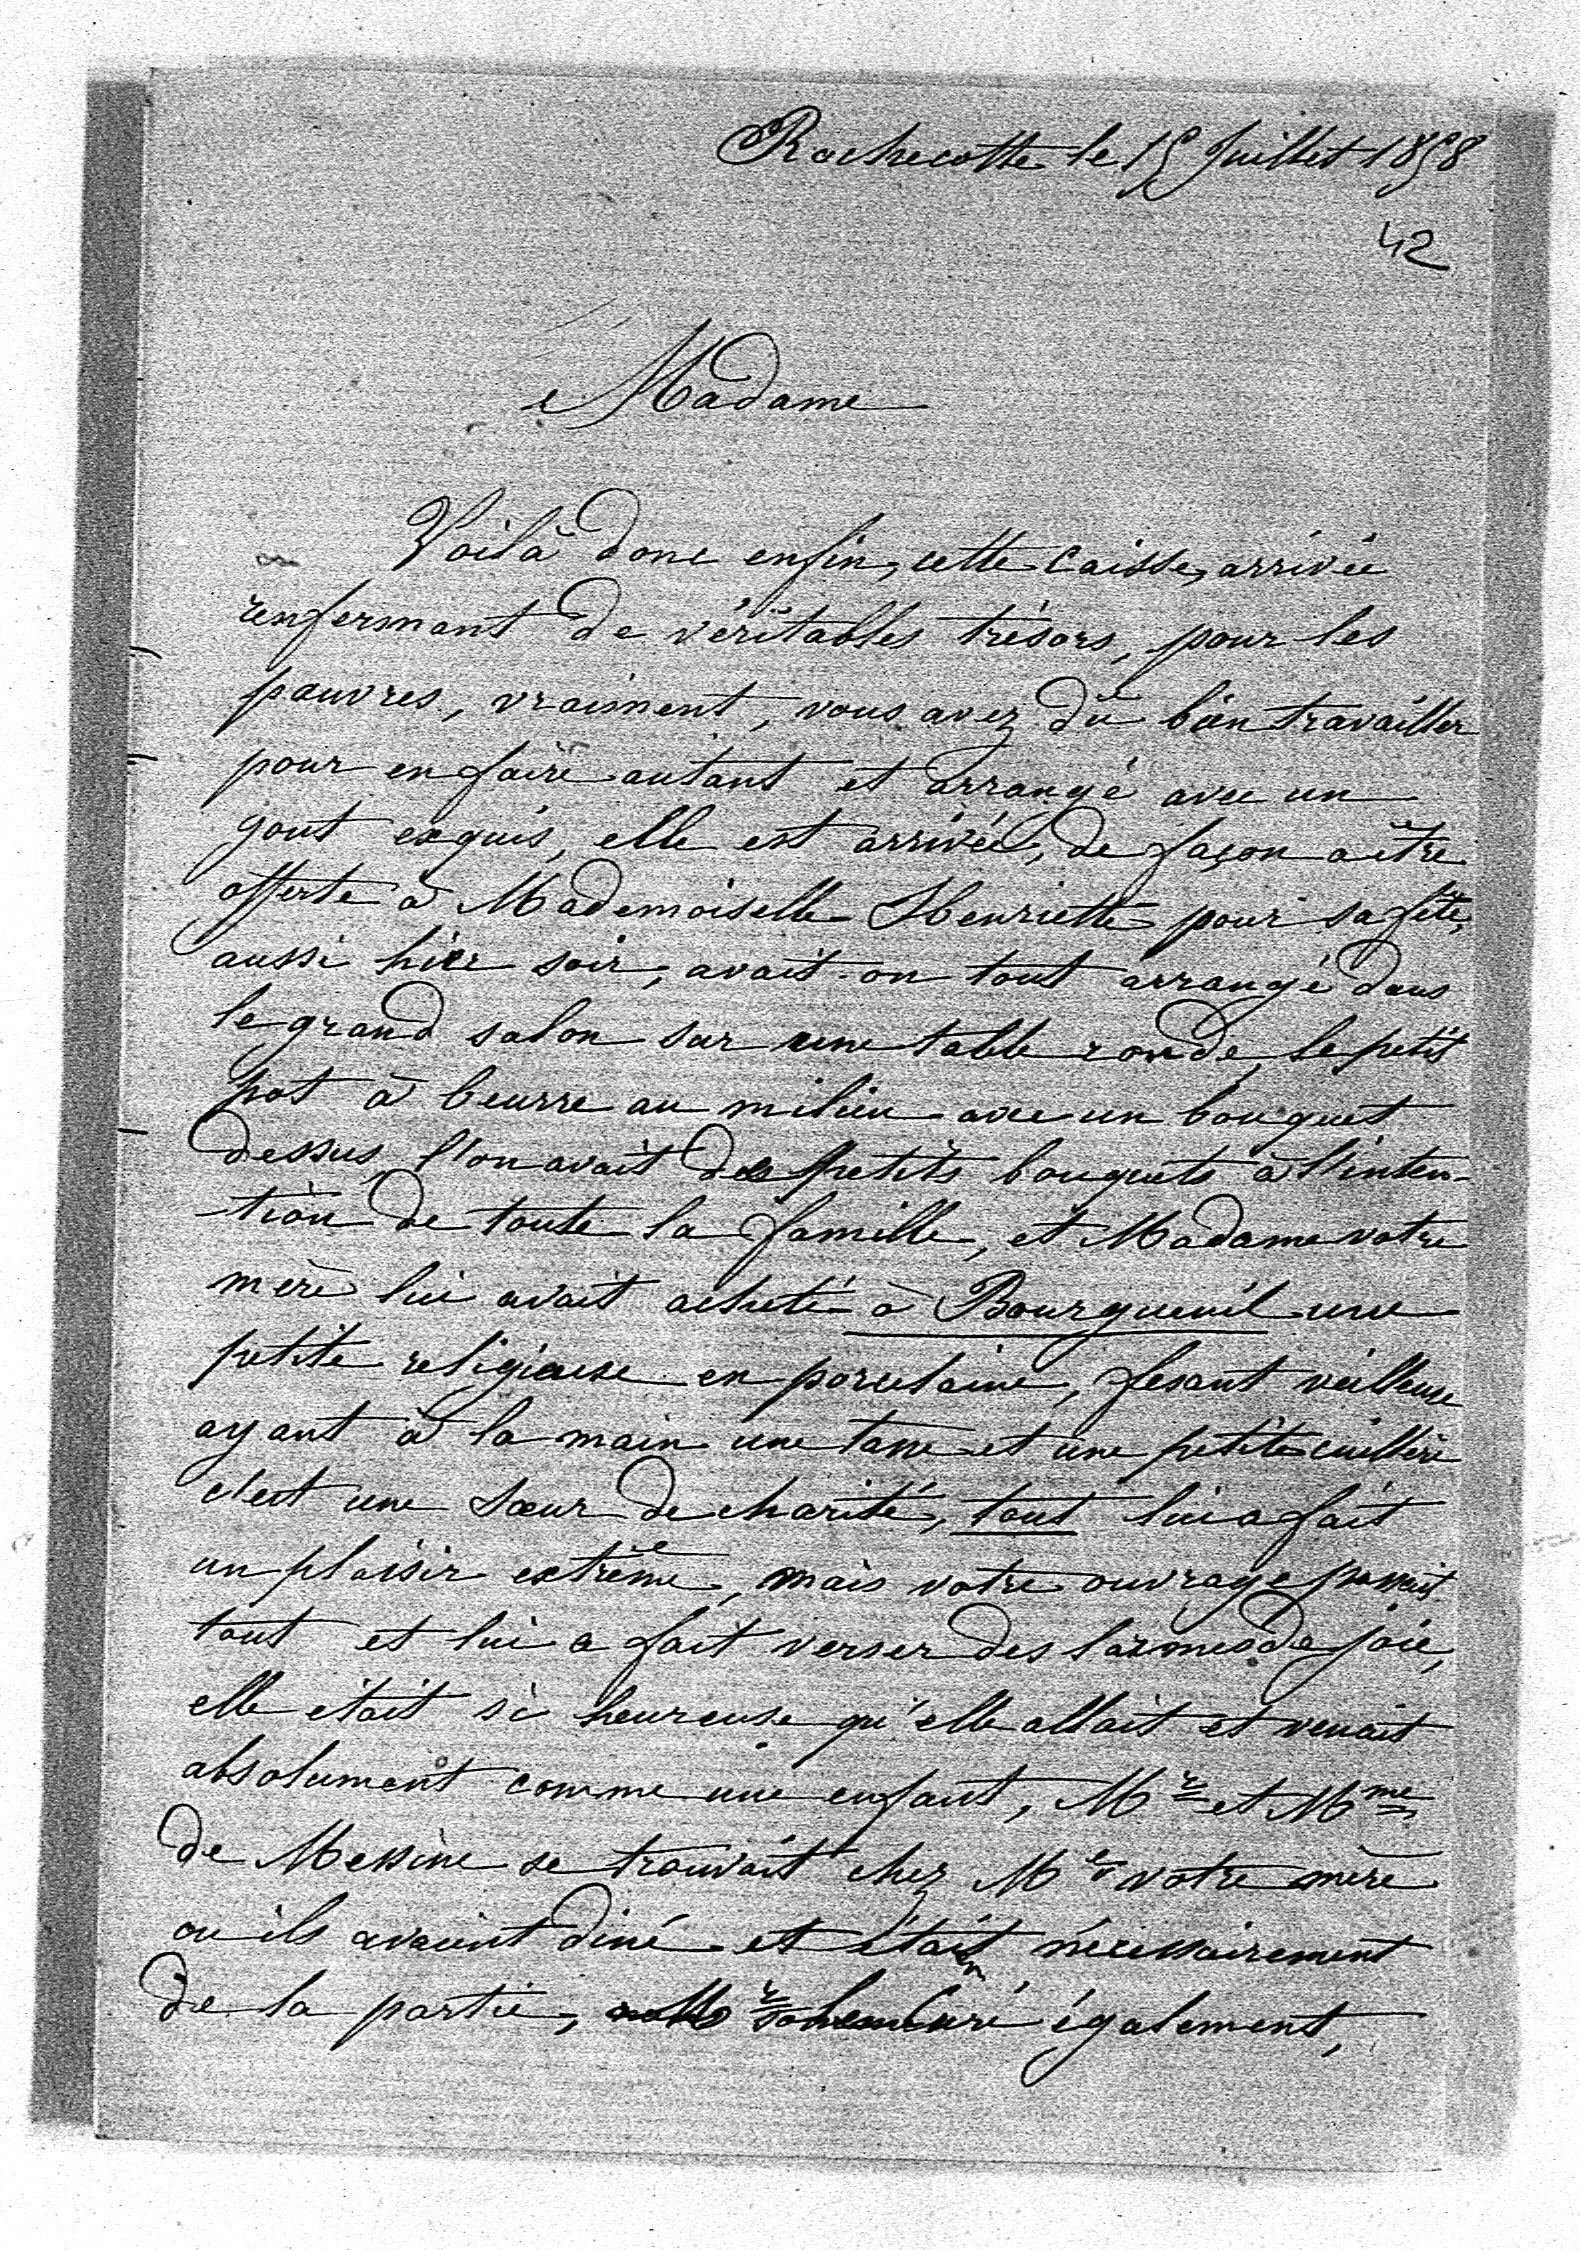 Rochecotte le 15 Juillet 1858
42
Madame
Voilà donc enfin, cette caisse, arrivée
renfermant de véritables trésors, pour les
pauvres, vraiment, vous avez dû bien travailler
pour en faire autant et arrangé avec un
gout exquis, elle est arrivée, de façon a être
offerte à Mademoiselle Henriette pour sa fête,
aussi hier soir, avait-on tout arrangé dans
le grand salon sur une table ronde, le petit
pot à beurre au milieu avec un bouquet
dessus, l'on avait des petits bouquets à l'inten-
-tion de toute la famille, et Madame votre
mère lui avait acheté à Bourgueuil une
petite religieuse en porcelaine, fesant veilleuse
ayant à la main une tasse et une petite cuillère
c'est une sœur de charité, tout lui a fait
un plaisir extrême, mais votre ouvrage passait
tout et lui a fait verser des larmes de joie,
elle était si heureuse qu'elle allait et venait
absolument comme une enfant, Mr et Mme
de Messine se trouvait chez Me votre mère
ou ils avaient diné et étaient nécessairement
de la partie, Mr curé également,